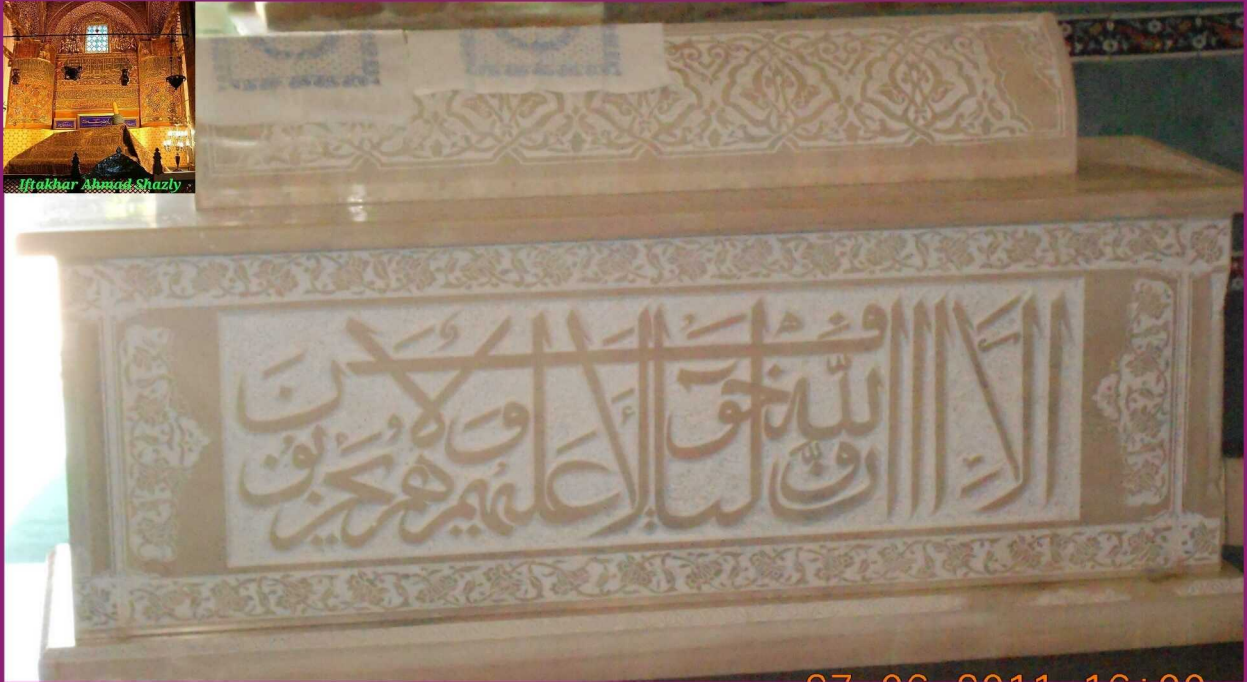 Iftakhar Ahmad Shazly
الا إن اولياء الله لا خوف عليهم ولا هم يحزنون